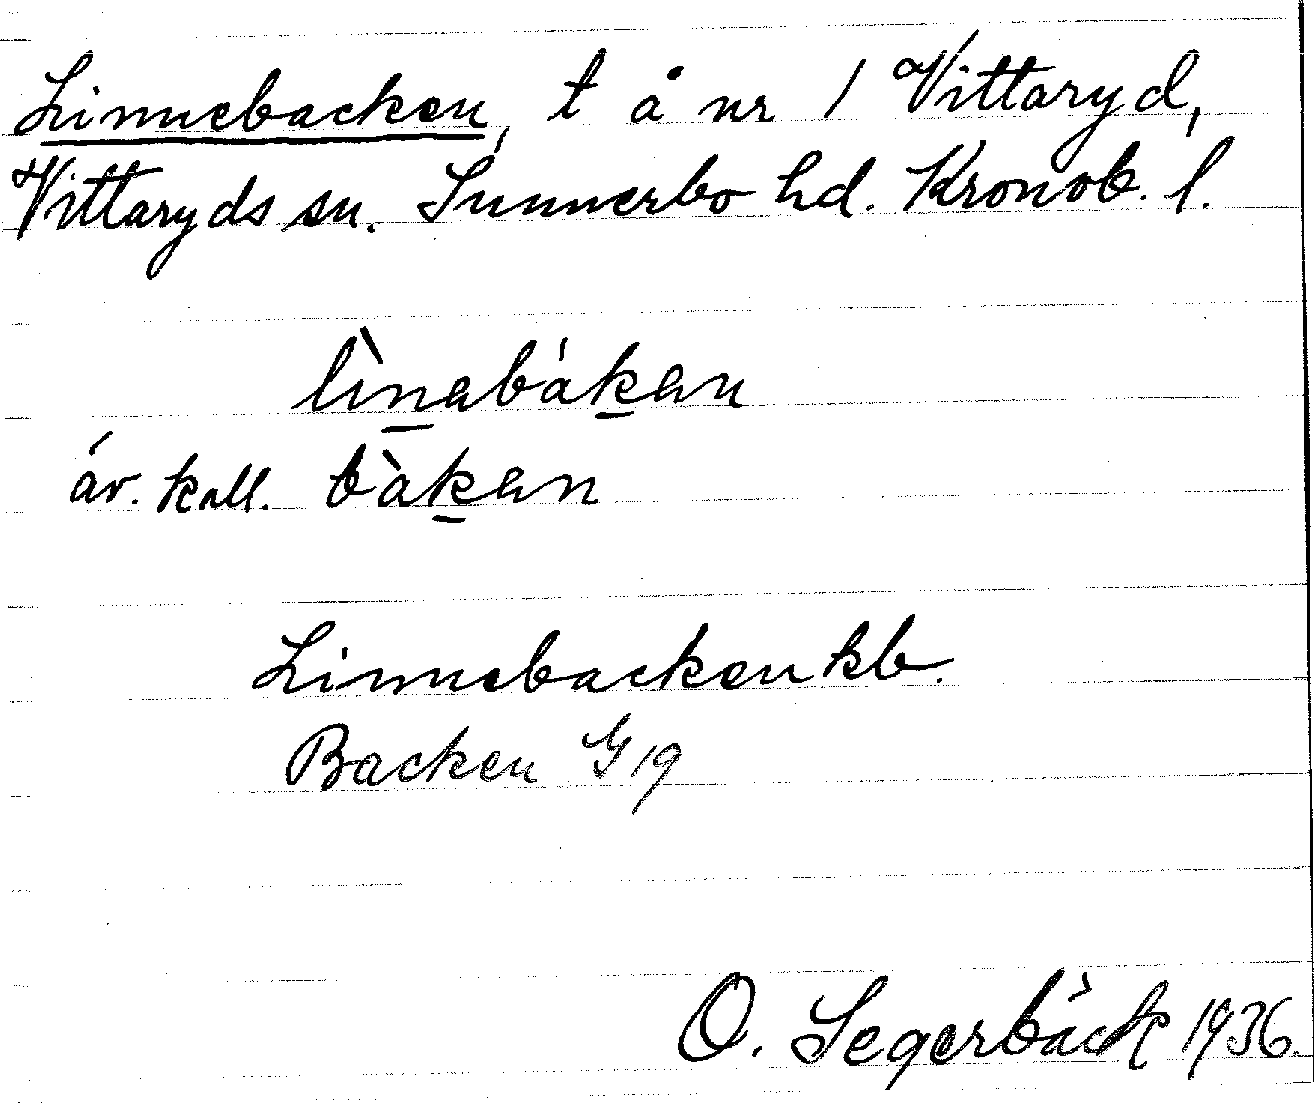 Linnebacken, t å nr 1 Vittaryd,
Vittaryds sn. Sunnerbo hd. Kronob. l.
lìnabákan
äv. kall. bàkan
Linnebacken kb.
Backen G 19
O. Segerbäck 1936.